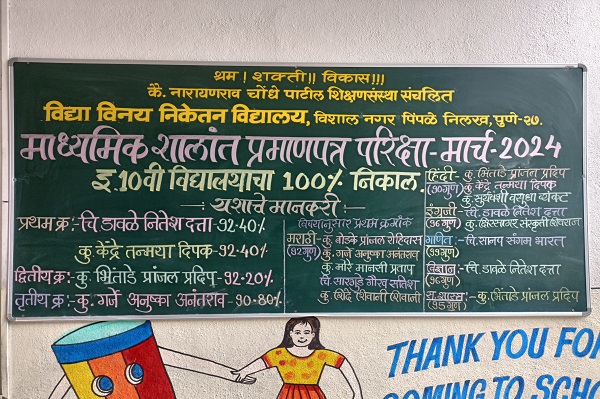 श्रम ! शक्ती !! विकास !!!
कै. नारायणराव चोंधे पाटील शिक्षणसंस्था संचलित
विद्या विनय निकेतन विद्यालय, विशाल नगर पिंपळे निलख, पुणे-२७.
माध्यमिक शालांत प्रमाणपत्र परिक्षा-मार्च-2024
इ.10वी विद्यालयाचा 100% निकाल
-: यशाचे मानकरी :-
प्रथम क्र:- चि डावळे नितेश दत्ता-92.40%
कु केंद्रे तन्मया दिपक-92.40%
द्वितीय क्र:- कु. भिंताडे प्रांजल प्रदिप-92.20%
तृतीय क्र:- कु. गर्जे अनुष्का अनंतराव-90.80%
विषयानुसार प्रथम क्रमांक
मराठी:- कु बोडके प्रांजल रोहिदास
(92गुण) कु. गर्जे अनुष्का अनंतराव
कु. मोरे मानसी प्रताप
चि. सारखुडे गौरव सतिश
कु. शिंदे शिवानी शिवाजी
हिंदी:- कु भिंताडे प्रांजल प्रदिप
(90गुण) कु केंद्रे तन्मया दिपक
कु. सूर्यवंशी
इंग्रजी:- चि. डावळे नितेश दत्ता
(96गुण) कु. क्षिरसागर संस्कृती
गणित:- चि. सानप संगम भारत
(99गुण)
विज्ञान:- चि. डावळे नितेश दत्ता
(96गुण)
स.शास्त्र:- कु. भिंताडे प्रांजल प्रदिप
(95गुण)
THANK YOU FO
COMING TO SCHO